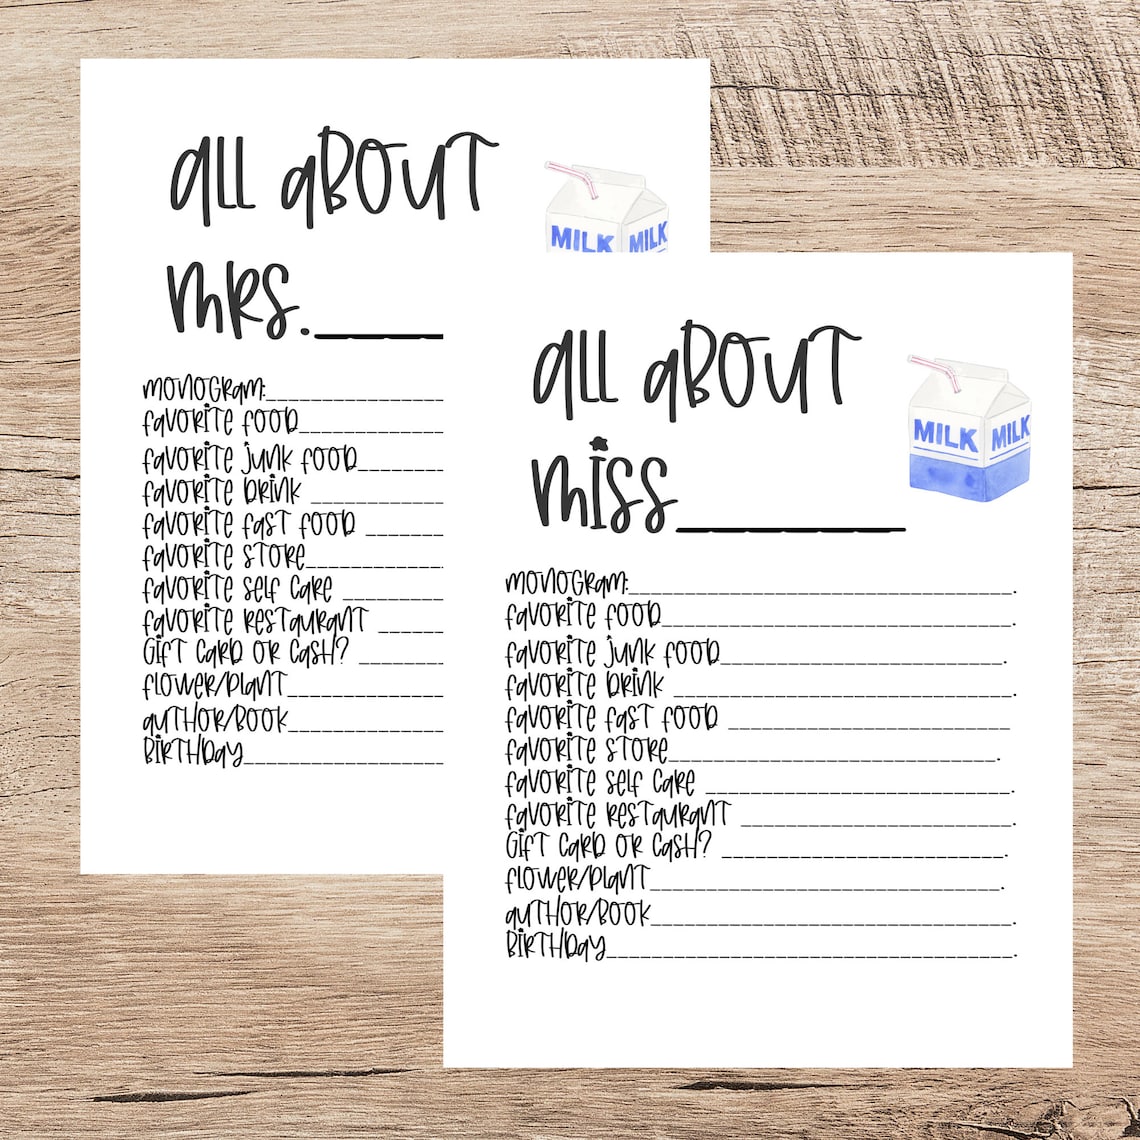 all about
MILK MILK
mrs.______
monogram:______________
favorite food______________
favorite junk food________
favorite drink ____________
favorite fast food _______
favorite store_____________
favorite self care _________
favorite restaurant ______
Gift card or cash? ________
flower/plant_______________
author/book_______________
Birthday____________________
all about
MILK MILK
miss________
monogram:______________________________________.
favorite food___________________________________.
favorite junk food____________________________.
favorite drink __________________________________.
favorite fast food ____________________________
favorite store_________________________________.
favorite self care ______________________________.
favorite restaurant ___________________________.
Gift card or cash? ____________________________.
flower/plant___________________________________.
author/book____________________________________.
Birthday________________________________________.